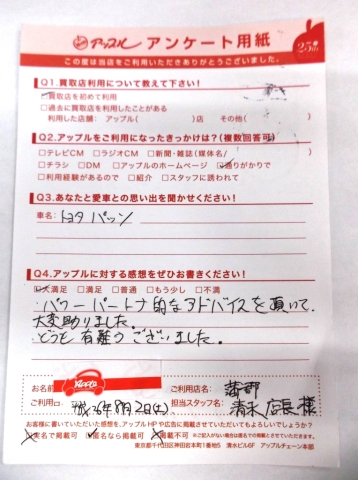 アップル アンケート用紙
25th
この度は当店をご利用いただきありがとうございました。
Q1.買取店利用について教えて下さい!
買取店を初めて利用
□過去に買取店を利用したことがある
利用した店舗: アップル( )店 その他( )
Q2.アップルをご利用になったきっかけは?(複数回答可)
□テレビCM □ラジオCM □新聞・雑誌(媒体名/ )
□チラシ □DM □アップルのホームページ 通りがかりで
□利用経験があるので □紹介 □スタッフに誘われて
Q3.あなたと愛車との思い出を聞かせください!
車名: トヨタ パッソ
Q4.アップルに対する感想をぜひお書きください!
大満足 □満足 □普通 □もう少し □不満
パワーパートナ的なアドバイスを頂いて、
大変助りました。
どうも有難うございました。
お名前 Apple ご利用店名: 蒲郡
ご利用日 平成26年8月2日(土) 担当スタッフ名: 清水店長様
お客様に書いていただいた感想を、アップルHPや広告に掲載させていただいてもよろしいでしょうか?
実名で掲載可 匿名なら掲載可 掲載不可 ※ご記入がない場合は匿名での掲載とさせていただきます。
東京都千代田区神田岩本町1番地5 清水ビル6F アップルチェーン本部